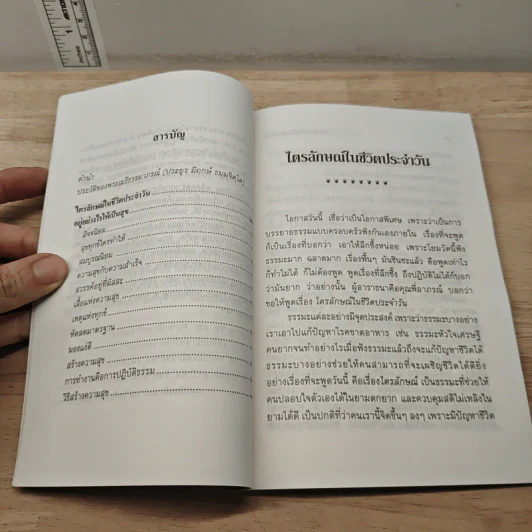 สารบัญ
คำนำ
ประวัติของพระเมธีธรรมาภรณ์ (ประยูร มีฤกษ์ ธมฺมจิตโต)
ไตรลักษณ์ในชีวิตประจำวัน
อยู่อย่างไรให้เป็นสุข
ปัจจนิยม
สุขทุกข์ใครทำให้
สมบูรณนิยม
ความสุขกับความสำเร็จ
สวรรค์อยู่ที่ผัสสะ
เรื่องแห่งความสุข
เหตุแห่งทุกข์
หัดลดมาตรฐาน
มองแง่ดี
สร้างความสุข
การทำงานคือการปฏิบัติธรรม
วิธีสร้างความสุข
ไตรลักษณ์ในชีวิตประจำวัน
* * * * * * * *
โอกาสวันนี้ เชื่อว่าเป็นโอกาสพิเศษ เพราะว่าเป็นการ
บรรยายธรรมแบบครอบครัวฟังกันเองภายใน เรื่องที่จะพูด
ก็เป็นเรื่องที่บอกว่า เอาให้ลึกซึ้งหน่อย เพราะโยมวัดนี้ฟัง
ธรรมะมาก ฉลาดมาก เรื่องพื้นๆ มันชินซะแล้ว คือพูดเท่าไร
ก็ทำไม่ได้ ก็ไม่ต้องพูด พูดเรื่องที่ลึกซึ้ง ถึงปฏิบัติไม่ได้ก็บอก
ว่ามันยาก ว่าอย่างนั้น ผู้อาราธนาคือคุณพี่อาภรณ์ บอกว่า
ขอให้พูดเรื่อง ไตรลักษณ์ในชีวิตประจำวัน
ธรรมะแต่ละอย่างมีจุดประสงค์ เพราะว่าธรรมะบางอย่าง
เราเอาไปแก้ปัญหาโรคขาดอาหาร เช่น ธรรมะหัวใจเศรษฐี
คนยากจนทำอย่างไรเมื่อฟังธรรมะแล้วถึงจะแก้ปัญหาชีวิตได้
ธรรมะบางอย่างช่วยให้คนสามารถที่จะเผชิญชีวิตได้ดียิ่ง
อย่างเรื่องที่จะพูดวันนี้ คือเรื่องไตรลักษณ์ เป็นธรรมะที่ช่วยให้
คนปลอบใจตัวเองได้ในยามตกยาก และควบคุมสติไม่เหลิงใน
ยามได้ดี เป็นปกติที่ว่าคนเรานี้จิตขึ้นๆ ลงๆ เพราะมีปัญหาชีวิต